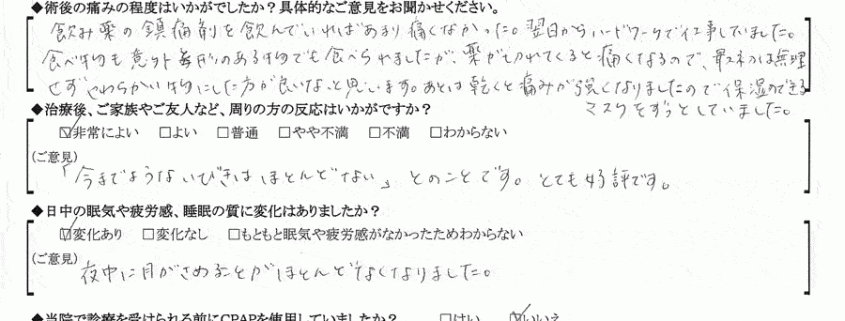 ◆術後の痛みの程度はいかがでしたか？具体的なご意見をお聞かせください。
飲み薬の鎮痛剤を飲んでいればあまり痛くなかった。翌日からハードワークで仕事していました。
食べ物も意外と歯応のある物でも食べられましたが、薬がきれてくると痛くなるので、最初は無理
せずやわらかい物にした方が良いなっと思います。あとは乾くと痛みが強くなりましたので保湿のできる
マスクをずっとしていました。
◆治療後、ご家族やご友人など、周りの方の反応はいかがですか？
☑非常によい　□よい　□普通　□やや不満　□不満　□わからない
(ご意見)
「今までようないびきはほとんどない」とのことです。とても好評です。
◆日中の眠気や疲労感、睡眠の質に変化はありましたか？
☑変化あり　□変化なし　□もともと眠気や疲労感がなかったためわからない
(ご意見)
夜中に目がさめることがほとんどなくなりました。
◆当院で診療を受けられる前にCPAPを使用していましたか？　□はい　☑いいえ